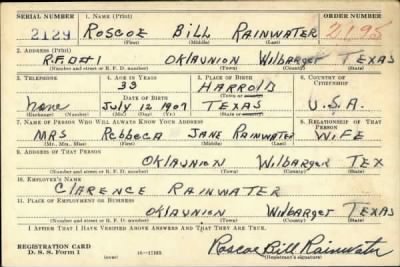 SERIAL NUMBER 1. NAME (Print) ORDER NUMBER
2129 ROSCOE BILL RAINWATER 2195
(First) (Middle) (Last)
2. ADDRESS (Print)
R.F.D#1 OKLAUNION Wilbarger TEXAS
(Number and street or R. F. D. number) (Town) (County) (State)
3. TELEPHONE 4. AGE IN YEARS 5. PLACE OF BIRTH 6. COUNTRY OF CITIZENSHIP
33 HARROLD
(Town or county)
None DATE OF BIRTH
July 12 1907 TEXAS U.S.A.
(Exchange) (Number) (Mo.) (Day) (Yr.) (State or country)
7. NAME OF PERSON WHO WILL ALWAYS KNOW YOUR ADDRESS 8. RELATIONSHIP OF THAT PERSON
MRS Rebbeca JANE RAINWATER WiFE
(Mr., Mrs., Miss) (First) (Middle) (Last)
9. ADDRESS OF THAT PERSON
OKlAUNION Wilbarger TEX
(Number and street or R. F. D. number) (Town) (County) (State)
10. EMPLOYER'S NAME
CLARENCE RAINWATER
11. PLACE OF EMPLOYMENT OR BUSINESS
OKlAUNION Wilbarger TEXAS
(Number and street or R. F. D. number) (Town) (County) (State)
I AFFIRM THAT I HAVE VERIFIED ABOVE ANSWERS AND THAT THEY ARE TRUE.
REGISTRATION CARD
D. S. S. Form 1 (over) Roscoe Bill Rainwater